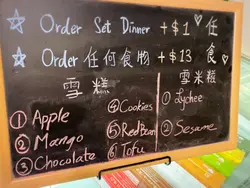 ☆ Order Set Dinner +$1♡任
☆ Order 任何食物 +$13 食
雪糕
① Apple
② Mango
③ Chocolate
④ Cookies
⑤ Red Bean
⑥ Tofu
雪米糕
① Lychee
② Sesame